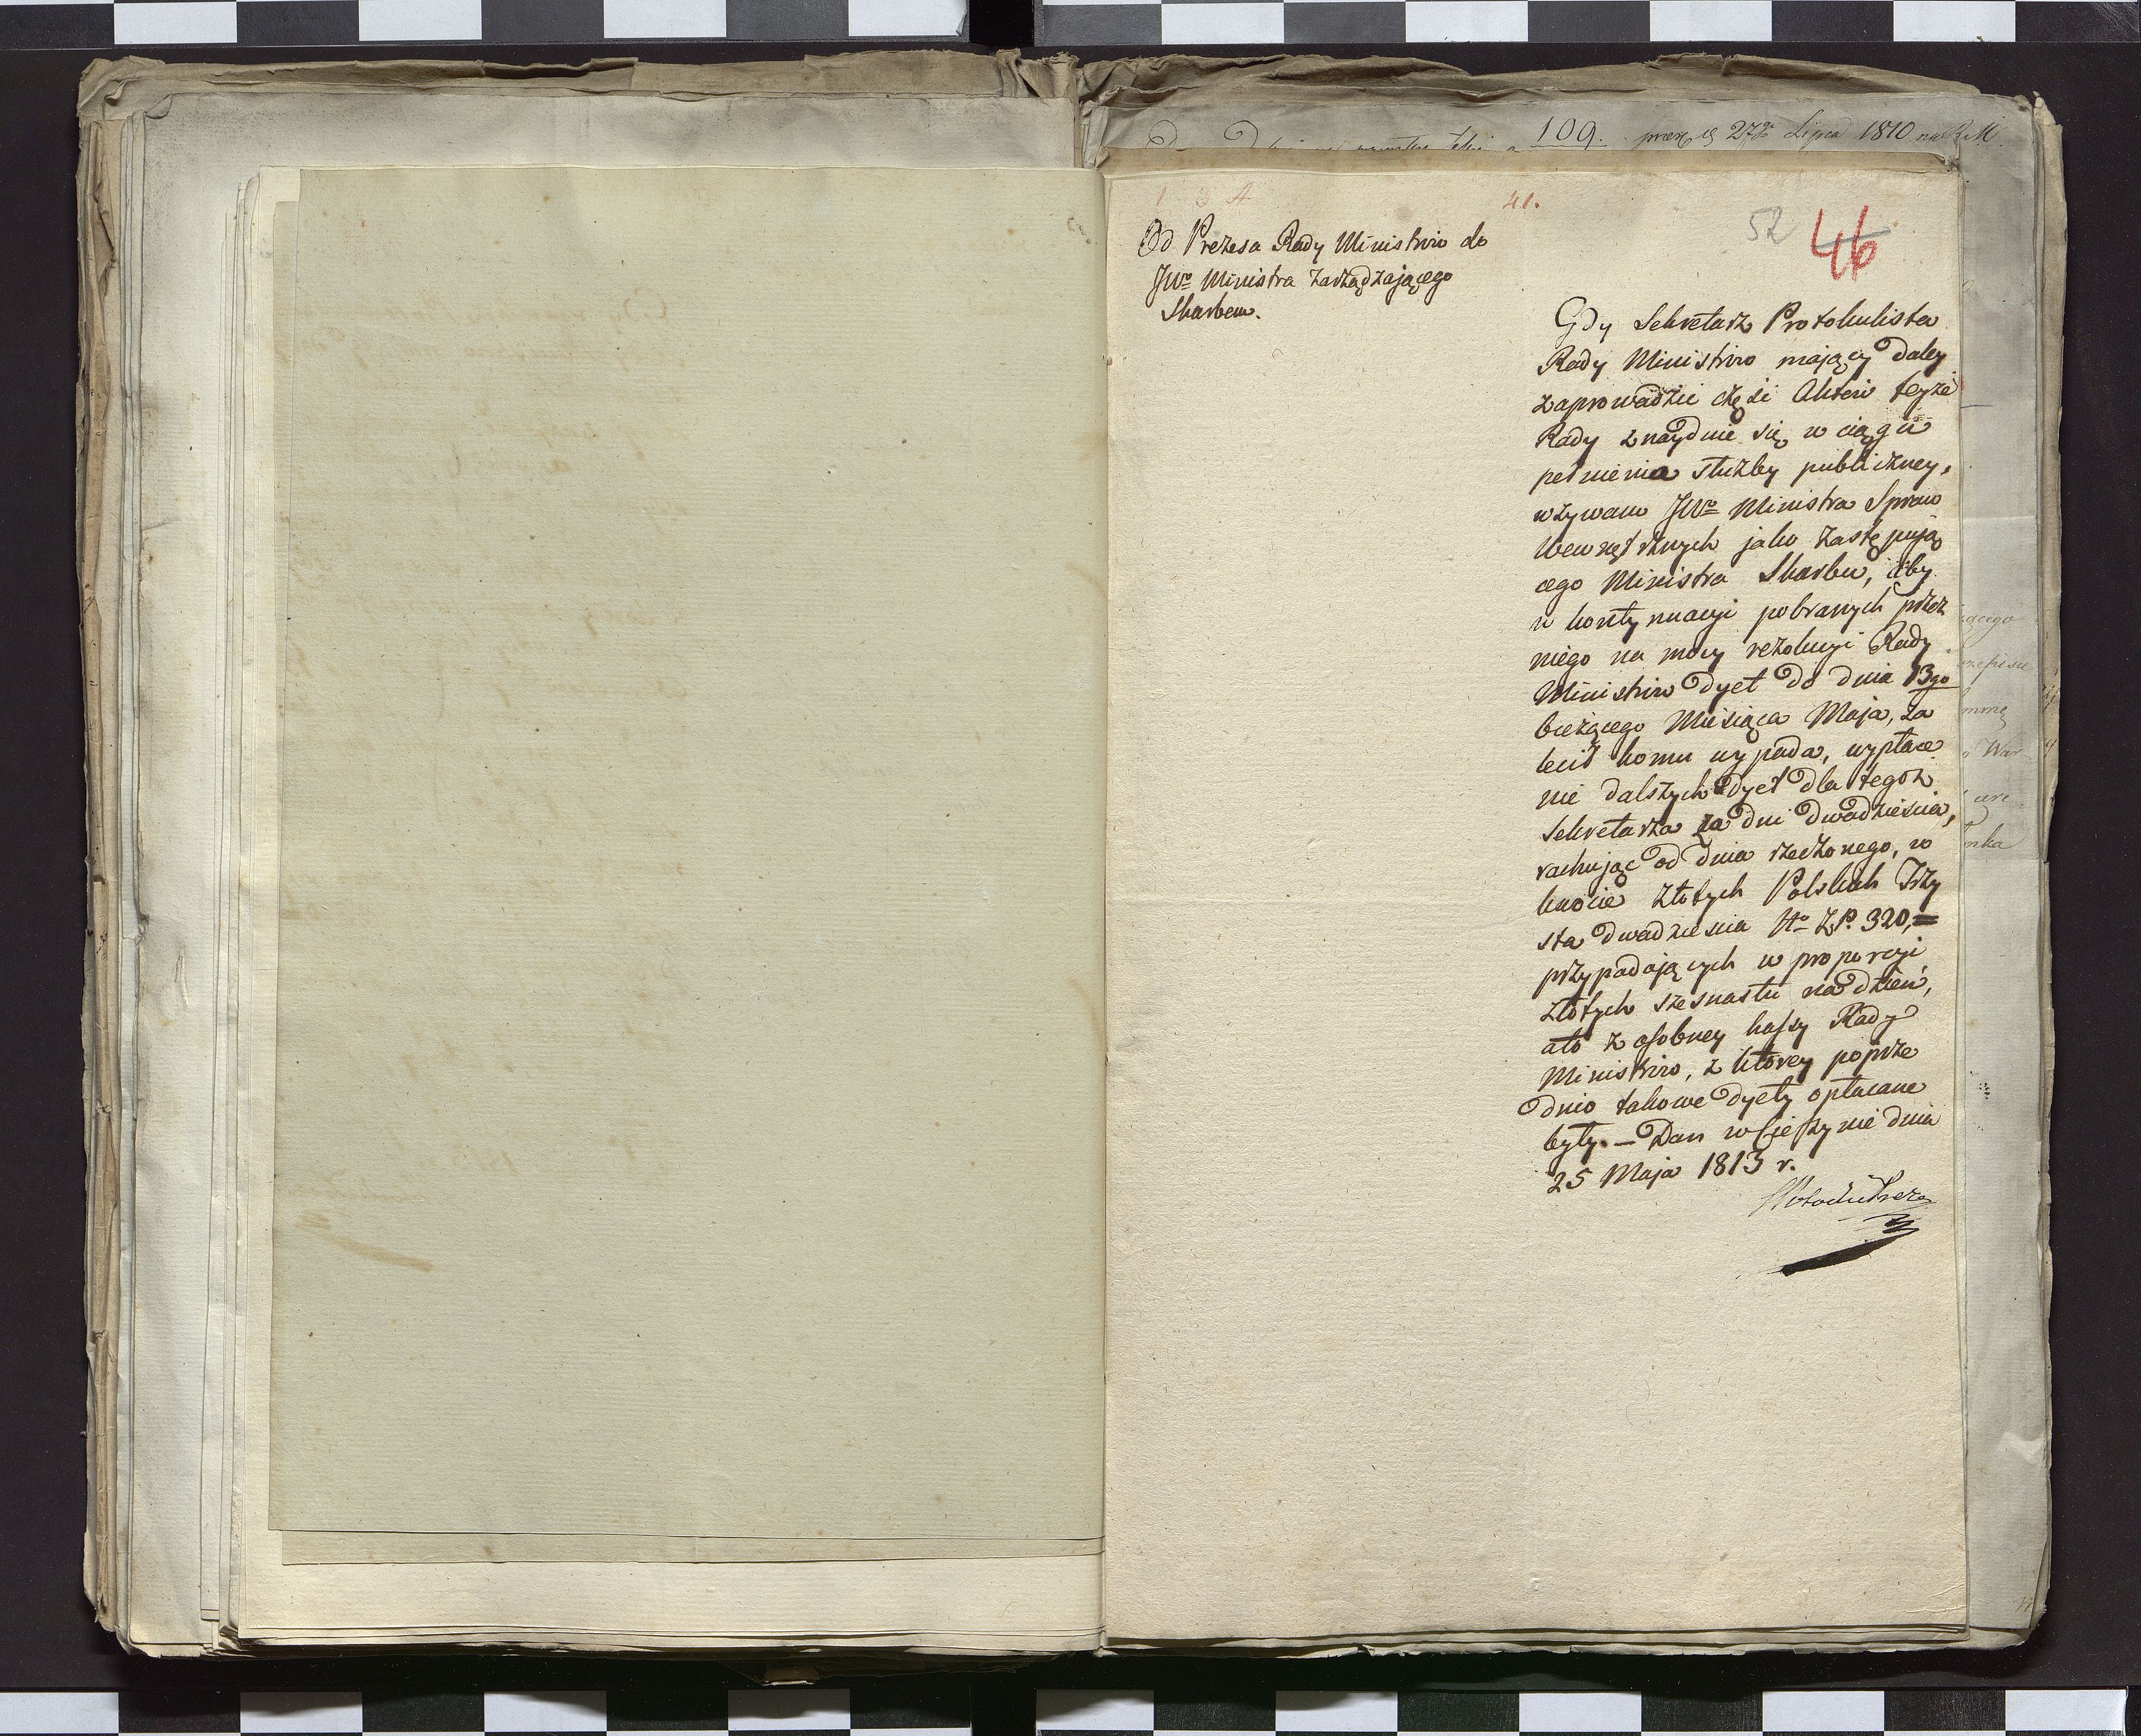 109. 27go Lipca 1810 na R.M.
1 3 4
41.
52 46
Od Prezesa Rady Ministrów do
JWo Ministra zarządzającego
Skarbem.
Gdy Sekretarz Protokulista
Rady Ministrów mający daley
zaprowadzić część Aktów teyże
Rady znayduie się w ciągu
pełnienia służby publiczney,
wzywam JWo Ministra Spraw
Wewnętrznych jako zastępują
cego Ministra Skarbu, aby
w kontynuacyi pobranych przez
niego na mocy rezolucyi Rady
Ministrów dyet do dnia 13go
bieżącego Miesiąca Maja, za
lecił komu wypada, wypłace
nie dalszych dyet dla tegoż
Sekretarza za dni dwadzieścia,
rachując od dnia rzeczonego, w
kwocie Złotych Polskich Trzy
sta dwadzieścia No ZP. 320,=
przypadających w proporcyi
złotych szesnastu na dzień,
a to z osobney kassy Rady
Ministrów, z którey poprze
dnio takowe dyety opłacane
były. – Dan w Cieszynie dnia
25 Maja 1813 r.
jącego
mmę
War